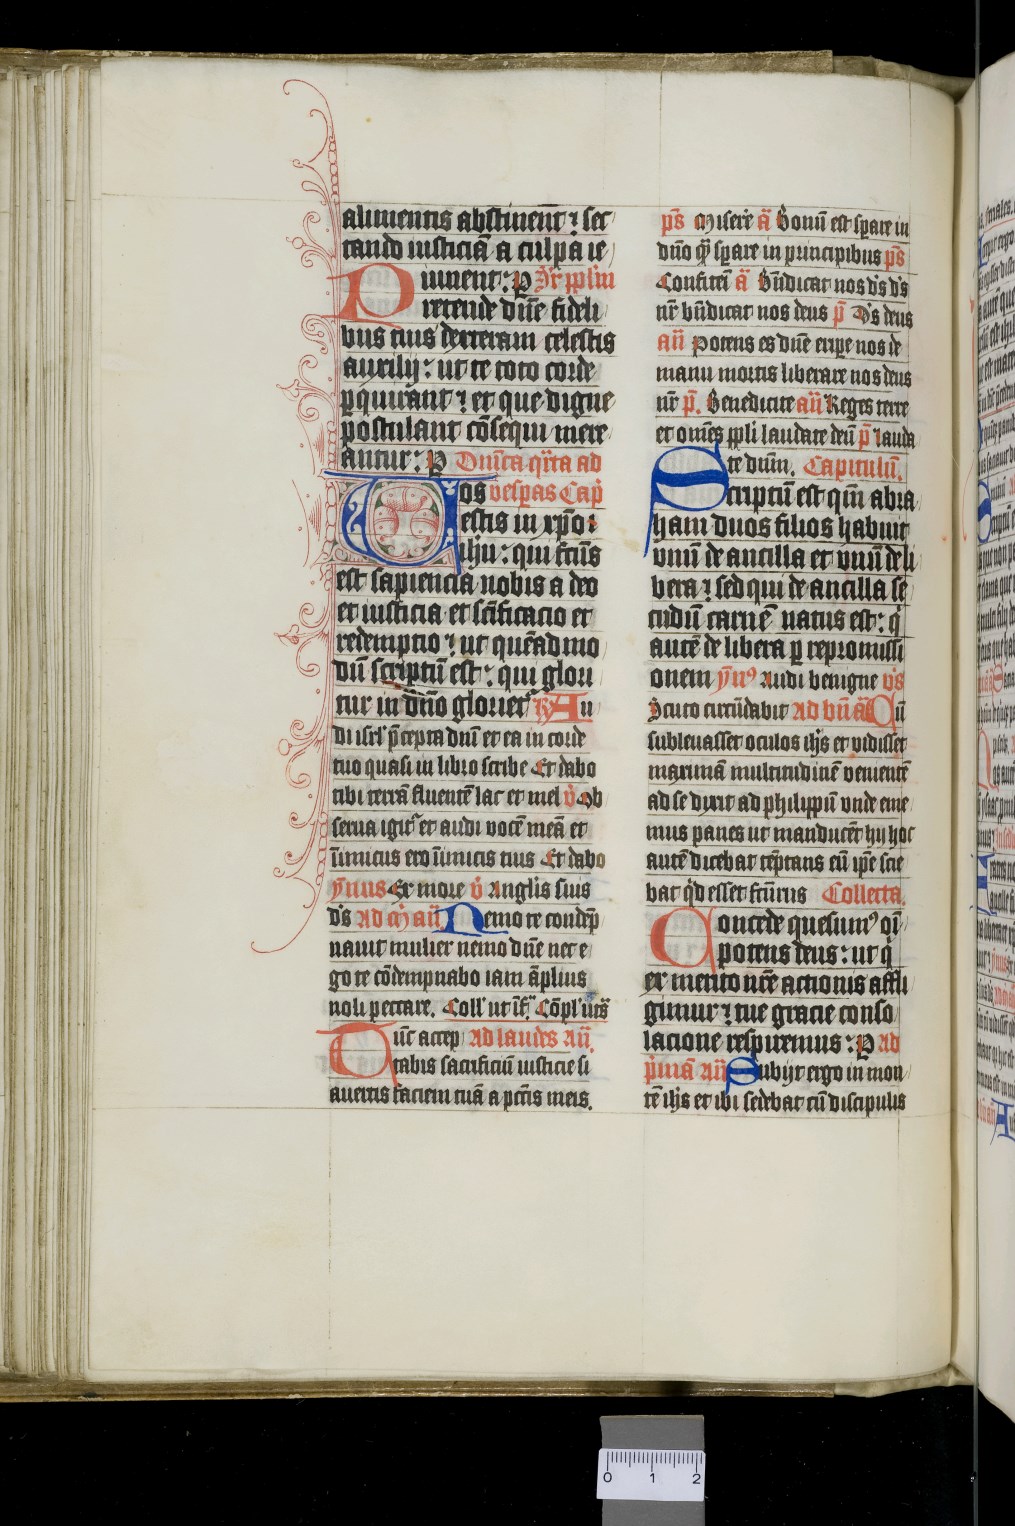 alimentis abstinent ⁊ sec
tando iusticiā a culpa ie
iunent: P
Pretende dn̄e fideli
bus tuis dexteram celestis
auxilij: ut te toto corde
ꝑquirant ⁊ et que digne
postulant cōsequi mere
antur: P Dn̄ica q̄rta ad
os vespas Cap̄
estis in xp̄o
ih̄u: qui fc̄us
est sapiencia nobis a deo
et iusticia et sc̄ificacio et
redemptio: ut quēadmo
dū scriptū est: qui glori
tur in dn̄o glorietr̄ R Au
di isrl̄ p̄cepta dn̄i et ea in corde
tuo quasi in libro scribe Et dabo
tibi terrā fluentē lac et mel v̄ Ob
serua igit᷑ et audi vocē meā et
īimicus ero īimicis tuis Et dabo
ym̄us Ex more v̄ Angl̄is suis
ds̄ ad m̄ an̄. Nemo te condēp
nauit mulier nemo dn̄e nec e
go te cōdempnabo iam āplius
noli peccare. Coll̄ ut Cōpl̄
ūc accep ad laudes an̄.
Tabis sacrificiū iusticie si
auertis faciem tuā a pctīs meis.
ps̄ Misere ā Bonū est sꝑare in
dn̄o q̄ sꝑare in principibus ps̄
Confitei ā Bn̄dicat nos ds̄ ds̄
nr̄ bn̄dicat nos deus p̄ Ds̄ deus
an̄ Potens es dn̄e eriꝑe nos de
manu mortis liberare nos deus
nr̄ p̄. Benedicite an̄ Reges terre
et om̄es ppl̄i laudate deū p̄ lauda
te dūm. Capitulū.
Scriptū est qm̄ abra
ham duos filios habuit
vnū de ancilla et vnū de li
bera: sed qui de ancilla se
cūdū carnē natus est: q̄
autē de libera ꝑ repromissi
onem ym̄⁹ Audi benigne vs̄
Scuto circūdabit ad bn̄ ā Cū
subleuasset oculos ih̄s et vidisset
maximā multitudinē venientē
ad se dixit ad philippū vnde eme
mus panes ut manducēt hij hoc
autē dicebat tēptans eū ip̄e scie
bat qd̄ esset fc̄urus Collecta.
Concede quesum⁹ om̄
potens deus: ut q̄
ex merito nr̄e actionis affli
gimur: tue gracie conso
lacione respiremus: P Ad
p̄mā an̄ Subijt ergo in mon
tē ih̄s et ibi sedebat cū discipulis